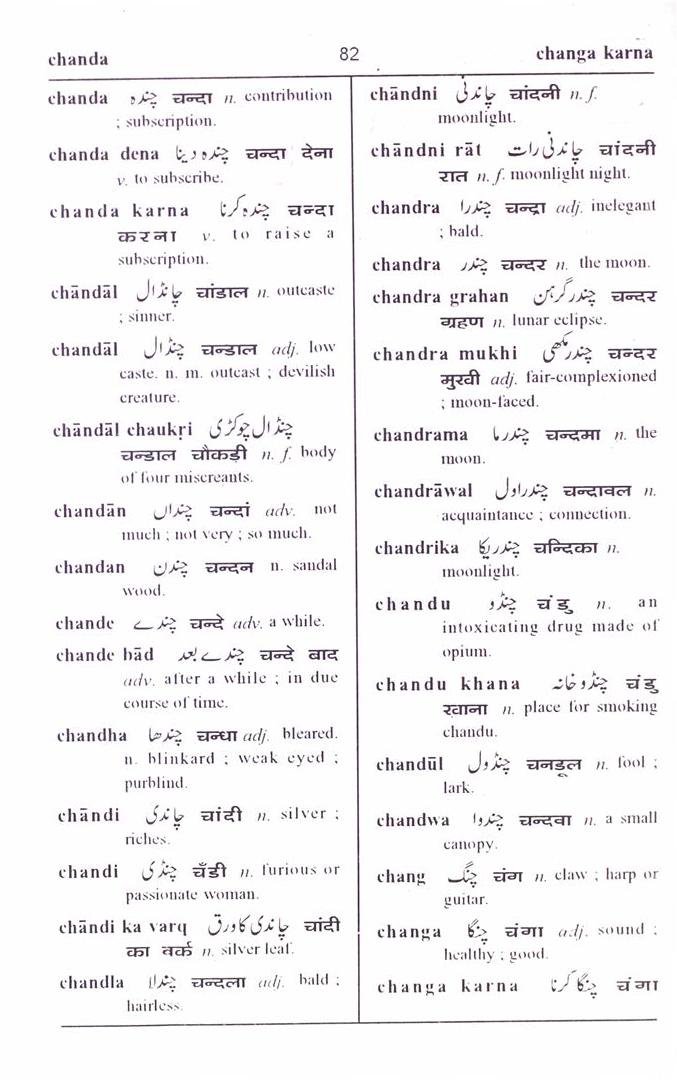 chanda 82 changa karna
chanda چندہ चन्दा n. contribution
; subscription.
chanda dena چندہ دینا चन्दा देना
v. to subscribe.
chanda karna چندہ کرنا चन्दा
करना v. to raise a
subscription.
chāndāl چانڈال चांडाल n. outcaste
; sinner.
chandāl چنڈال चन्डाल adj. low
caste. n. m. outcast ; devilish
creature.
chāndāl chaukṛi چنڈال چوکڑی
चन्डाल चौकड़ी n. f. body
of four miscreants.
chandān چنداں चन्दां adv. not
much ; not very ; so much.
chandan چندن चन्दन n. sandal
wood.
chande چندے चन्दे adv. a while.
chande bād چندے بعد चन्दे बाद
adv. after a while ; in due
course of time.
chandha چندھا चन्धा adj. bleared.
n. blinkard ; weak eyed ;
purblind.
chāndi چاندی चांदी n. silver ;
riches.
chandi چنڈی चँडी n. furious or
passionate woman.
chāndi ka varq چاندی کا ورق चांदी
का वर्क n. silver leaf.
chandla چندلا चन्दला adj. bald ;
hairless.
chāndni چاندنی चांदनी n. f.
moonlight.
chāndni rāt چاندنی رات चांदनी
रात n. f. moonlight night.
chandra چندرا चन्द्रा adj. inelegant
; bald.
chandra چندر चन्दर n. the moon.
chandra grahan چندر گرہن चन्दर
ग्रहण n. lunar eclipse.
chandra mukhi چندر مکھی चन्दर
मुखी adj. fair-complexioned
; moon-faced.
chandrama چندرما चन्दमा n. the
moon.
chandrāwal چندراول चन्दावल n.
acquaintance ; connection.
chandrika چندریکا चन्दिका n.
moonlight.
chandu چنڈو चंडु n. an
intoxicating drug made of
opium.
chandu khana چنڈو خانہ चंडु
खाना n. place for smoking
chandu.
chandūl چنڈول चनडूल n. fool ;
lark.
chandwa چندوا चन्दवा n. a small
canopy.
chang چنگ चंग n. claw ; harp or
guitar.
changa چنگا चंगा adj. sound ;
healthy ; good.
changa karna چنگا کرنا चंगा